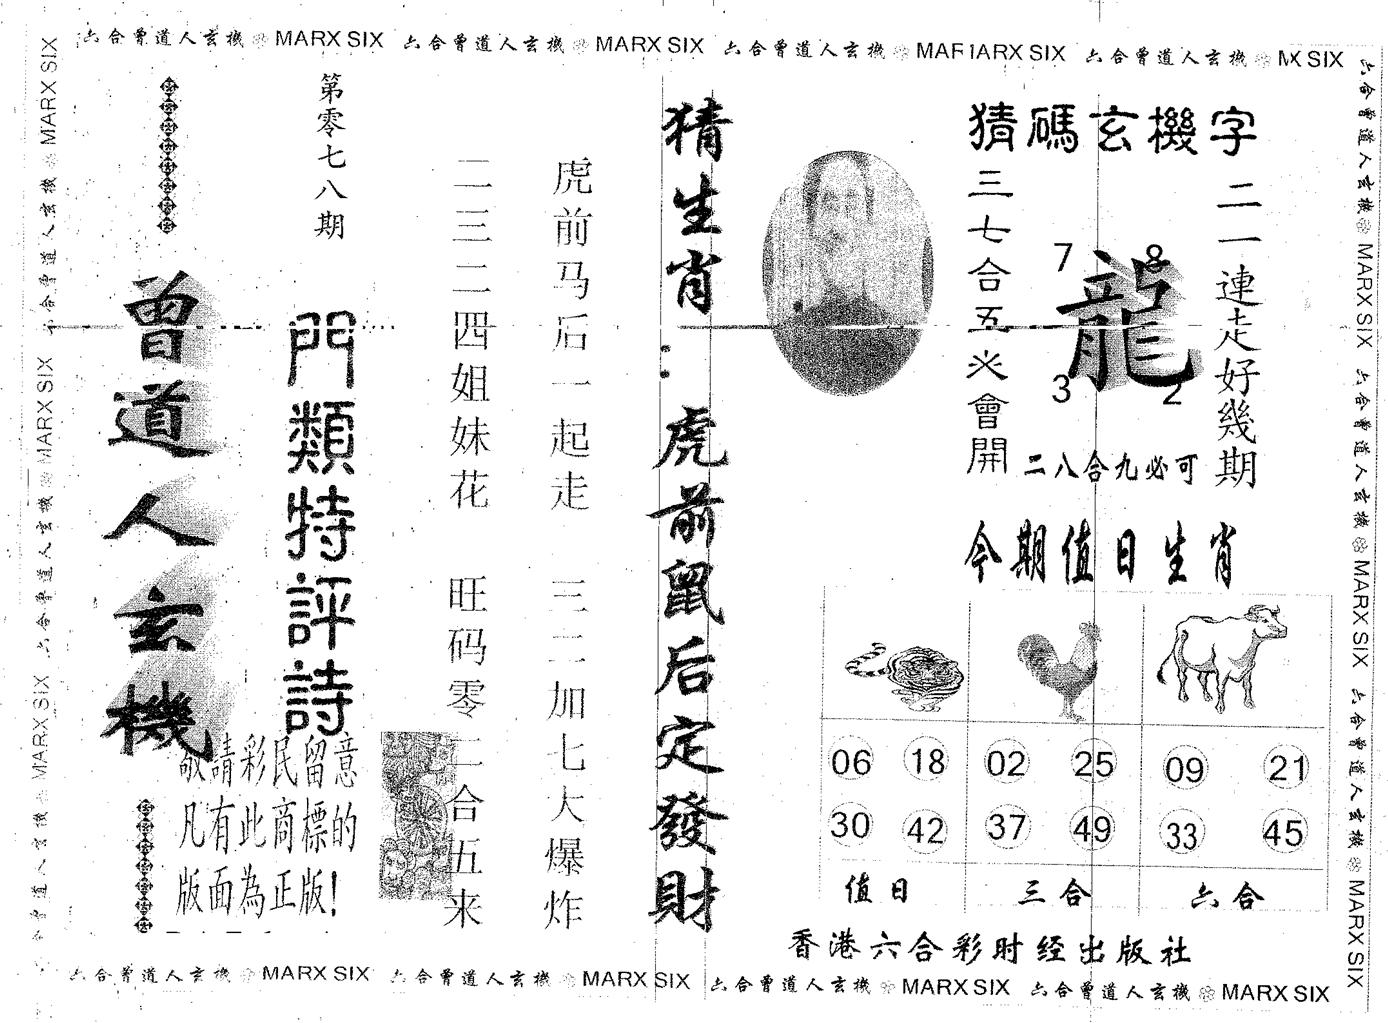 六合曾道人玄機 MARX SIX 六合曾道人玄機 MARX SIX 六合曾道人玄機 MAF1ARX SIX 六合曾道人玄機 MX SIX
六合曾道人玄機 MARX SIX 六合曾道人玄機 MARX SIX 六合曾道人玄機 MARX SIX
猜碼玄機字
二一連走好幾期
龍
7
8
3
2
三七合五火會開
二八合九必可
今期值日生肖
06 18 02 25 09 21
30 42 37 49 33 45
值日 三合 六合
香港六合彩时经出版社
猜生肖：虎前鼠后定發財
虎前马后一起走 三二加七大爆炸
二三二四姐妹花 旺码零二合五来
第零七八期
門類特評詩
曾道人玄機
敬請彩民留意
凡有此商標的
版面為正版！
六合曾道人玄機 MARX SIX 六合曾道人玄機 MARX SIX 曾道人玄機 MARX SIX
六合曾道人玄機 MARX SIX 六合曾道人玄機 MARX SIX 六合曾道人玄機 MARX SIX 六合曾道人玄機 MARX SIX